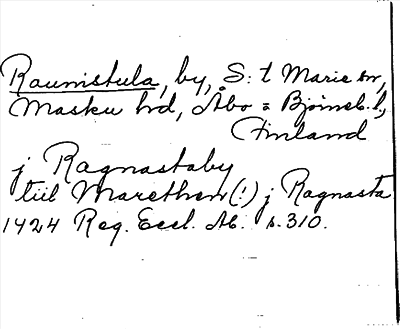 Raunistula, by, S:t Marie sn,
Masku hd, Åbo = Björneb. l.,
Finland
j Ragnastaby
till Marethen (!) j Ragnasta
1424 Reg. Eccl. Ab. s. 310.